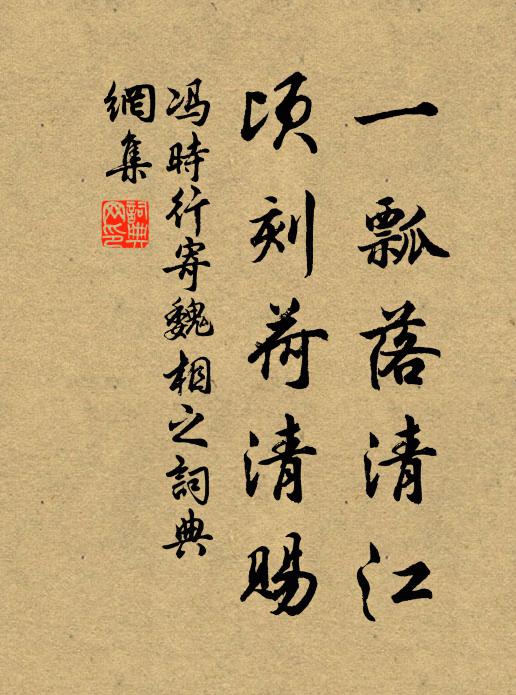 一瓢落清江
頃刻荷清賜
馮時行寄魏相之詞典
網集
詞典
网印